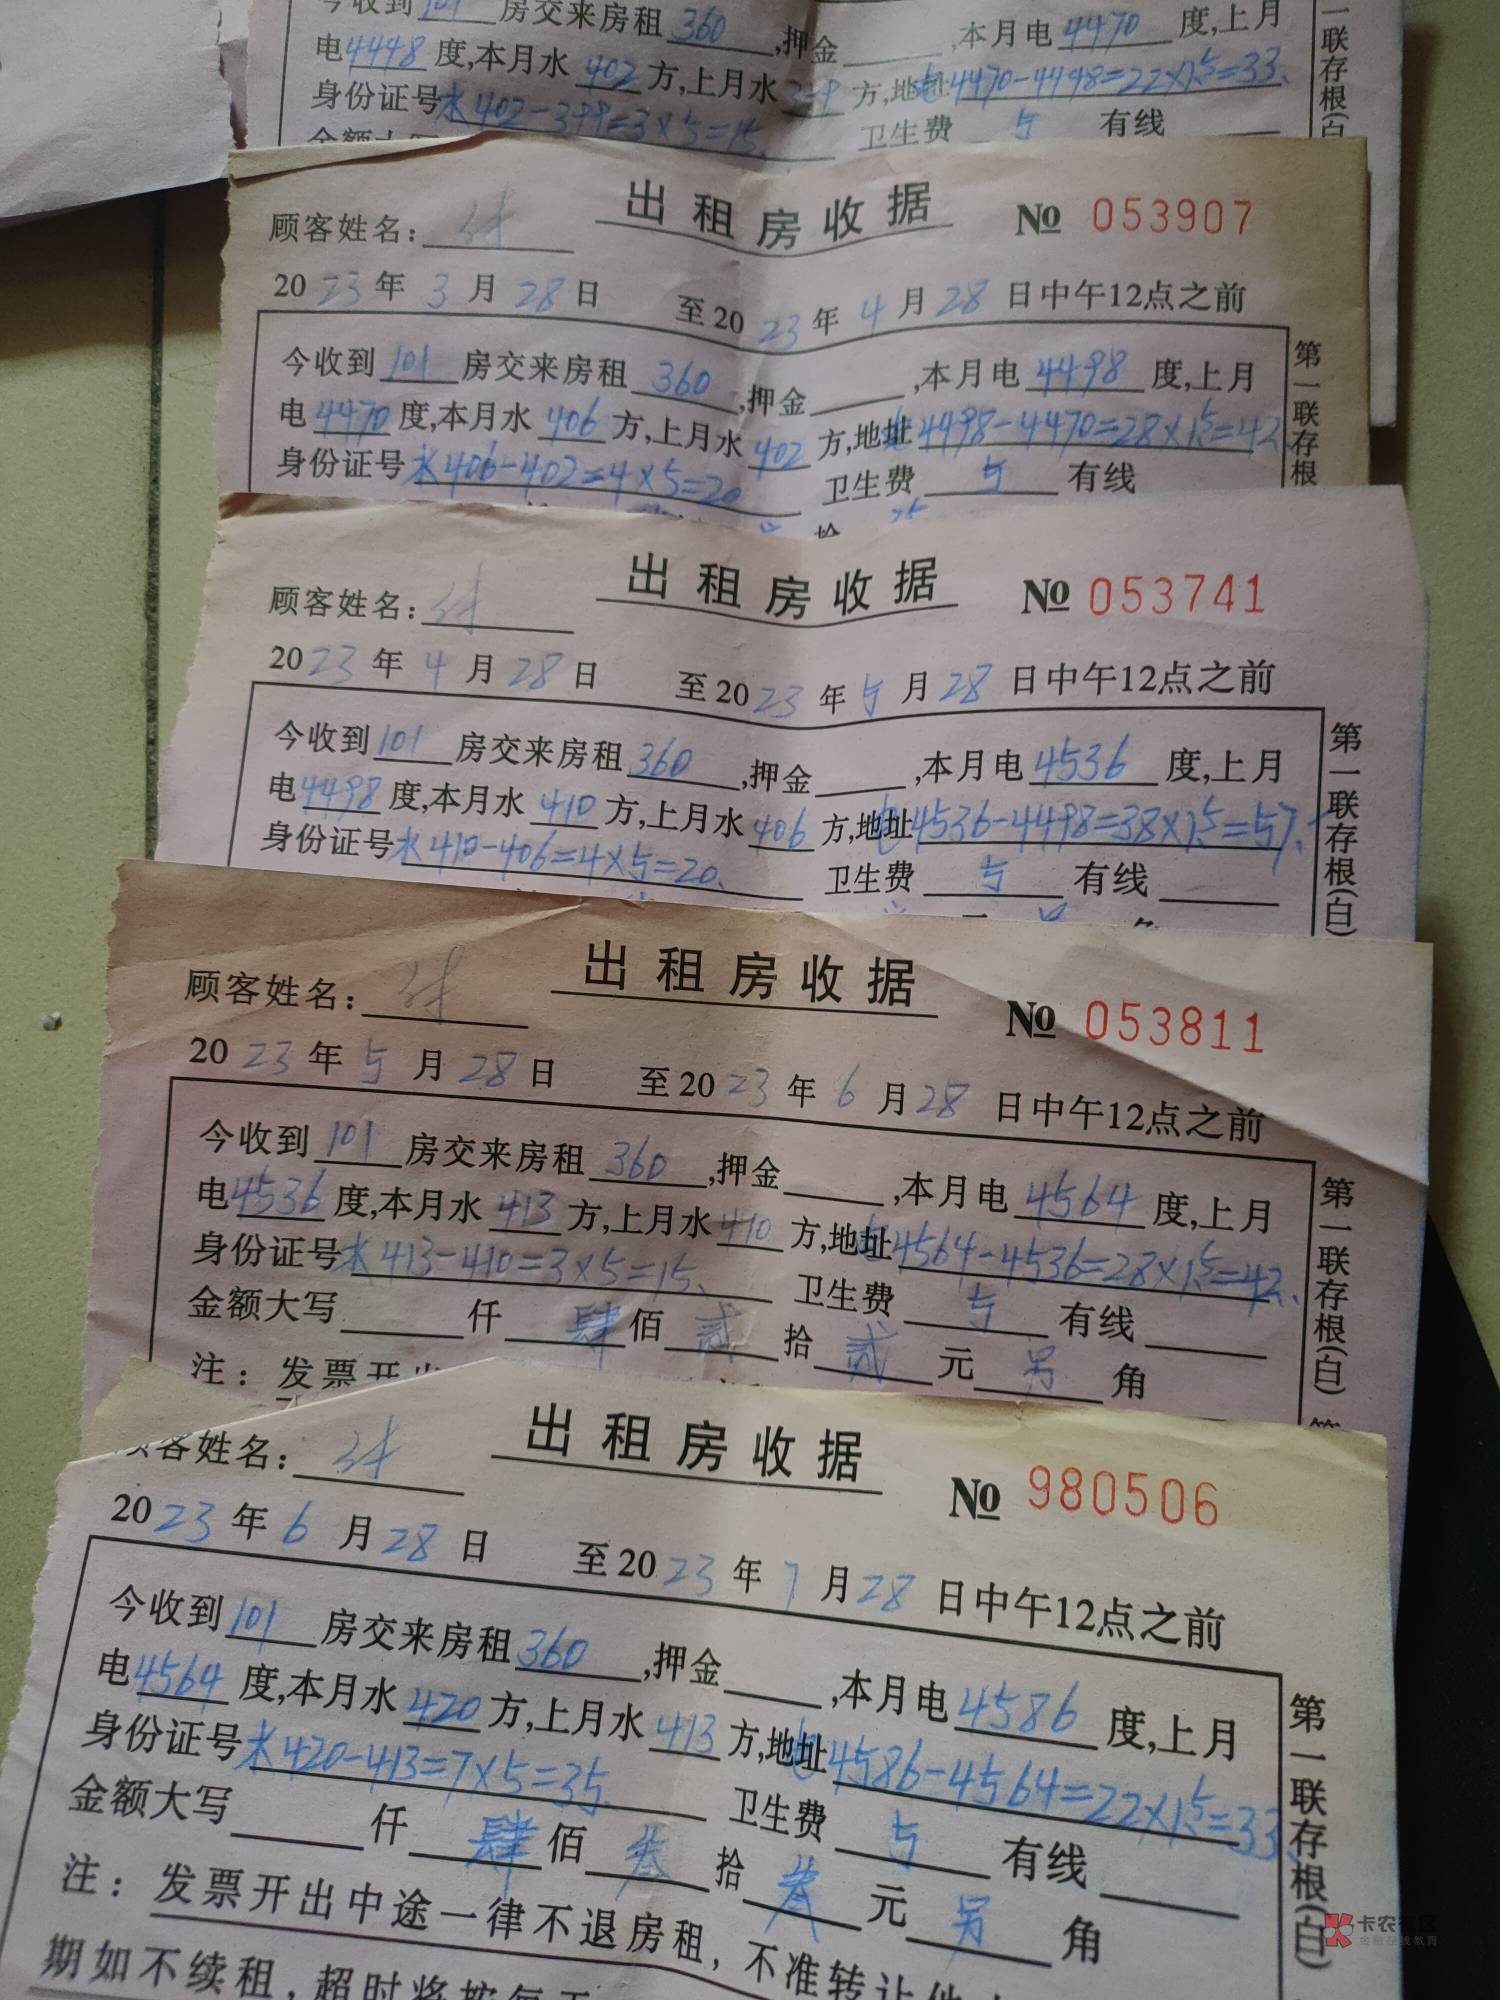 今收到101房交来房租360,押金 ,本月电4470度,上月
电4448度,本月水402方,上月水399方,地址电4470-4448=22×1.5=33.
身份证号水402-399=3×5=15. 卫生费5有线
第一联存根(白
出租房收据 № 053907
顾客姓名:
2023年3月28日 至2023年4月28日中午12点之前
今收到101房交来房租360,押金 ,本月电4498度,上月
电4470度,本月水406方,上月水402方,地址电4498-4470=28×1.5=42.
身份证号水406-402=4×5=20 卫生费5有线
拾
第一联存根
出租房收据 № 053741
顾客姓名:
2023年4月28日 至2023年5月28日中午12点之前
今收到101房交来房租360,押金 ,本月电4536度,上月
电4498度,本月水410方,上月水406方,地址电4536-4498=38×1.5=57.
身份证号水410-406=4×5=20. 卫生费5有线
第一联存根(白)
出租房收据 № 053811
顾客姓名:
2023年5月28日 至2023年6月28日中午12点之前
今收到101房交来房租360,押金 ,本月电4564度,上月
电4536度,本月水413方,上月水410方,地址电4564-4536=28×1.5=42.
身份证号水413-410=3×5=15. 卫生费5有线
金额大写 仟肆佰贰拾贰元另角
注:发票开出
第一联存根(白)
出租房收据 № 980506
客姓名:
2023年6月28日 至2023年7月28日中午12点之前
今收到101房交来房租360,押金 ,本月电4586度,上月
电4564度,本月水420方,上月水413方,地址电4586-4564=22×1.5=33
身份证号水420-413=7×5=35 卫生费5有线
金额大写 仟肆佰叁拾叁元另角
注:发票开出中途一律不退房租,不准转让他
期如不续租,超时将按每天
第一联存根(白)
卡农社区
金融在线教育